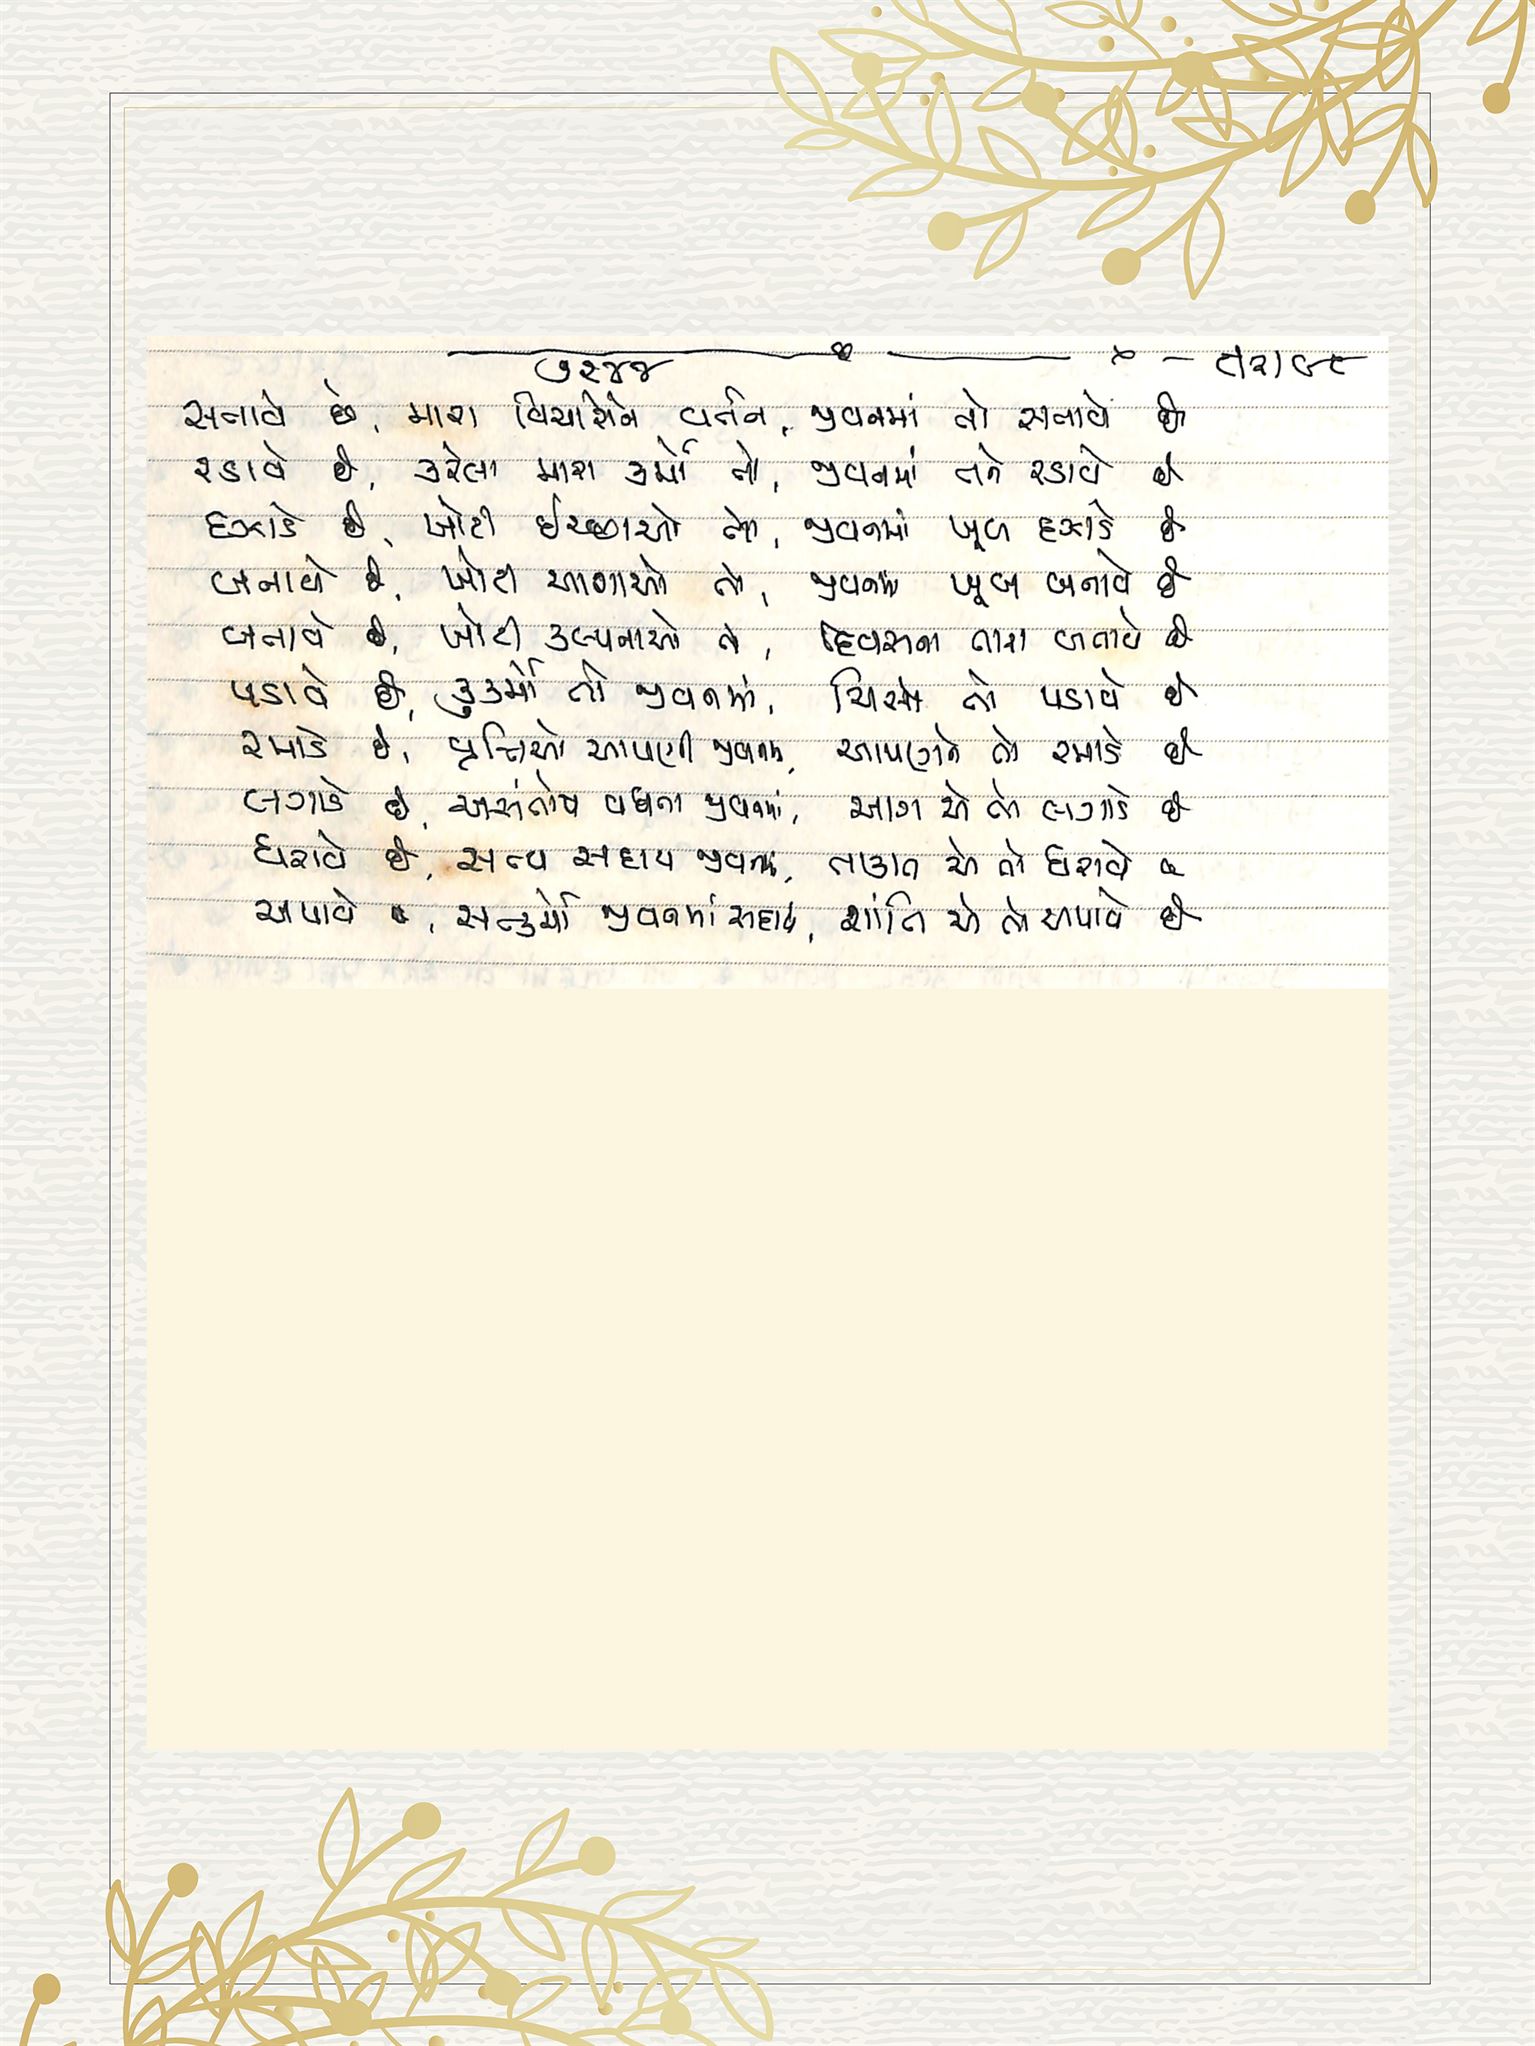 ૭૨૪૪
સતાવે છે, મારા વિચારોને વર્તન, જીવનમાં તો સતાવે છે
રડાવે છે, કરેલા મારા કર્મો તો, જીવનમાં તને રડાવે છે
દઝાડે છે, ખોટી ઈચ્છાઓ તો, જીવનમાં ખૂબ દઝાડે છે
બનાવે છે, ખોટી આશાઓ તો, જીવનમાં ખૂબ બનાવે છે
બતાવે છે, ખોટી કલ્પનાઓ તો, દિવસના તારા બતાવે છે
પડાવે છે, કુકર્મો તો જીવનમાં, ચિસો તો પડાવે છે
રમાડે છે, વૃત્તિઓ આપણી જીવનમાં, આપણને તો રમાડે છે
લગાડે છે, અસંતોષ વધતા જીવનમાં, આગ એ તો લગાડે છે
ધરાવે છે, સત્ય સદાય જીવનમાં, તાકાત એ તો ધરાવે છે
અપાવે છે, સત્કર્મો જીવનમાં સદાય, શાંતિ એ તો અપાવે છે